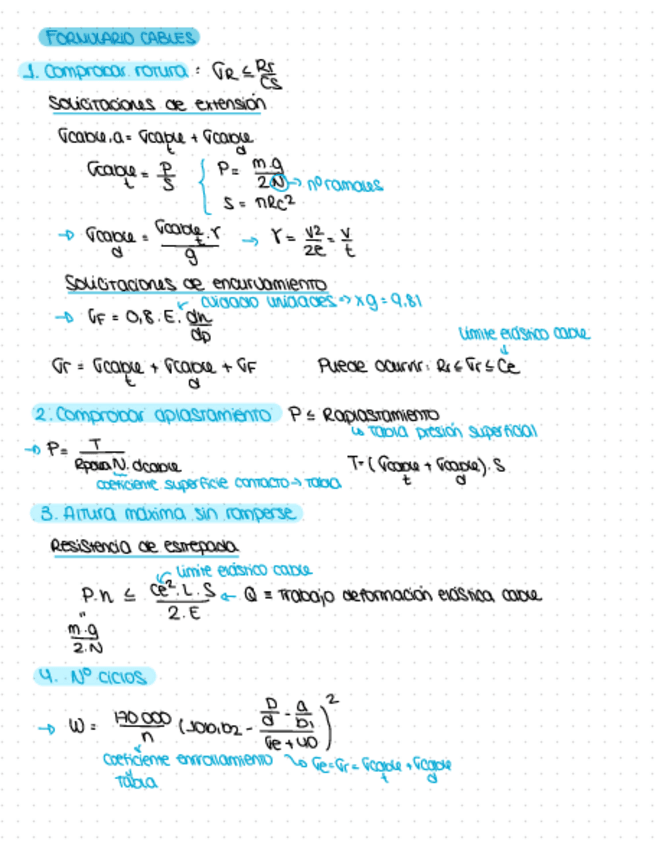 FORMULARIO CABLES
1. Comprobar rotura : σR ≤ Rr/Cs
Solicitaciones de extensión
σcable,a = σcable t + σcable d
σcable t = P/S { P = m.g/2N → nº ramales
S = πRc²
→ σcable d = σcable t . γ/g → γ = v2/2e = v/t
Solicitaciones de encurvamiento
cuidado unidades → x g = 9.81
→ σF = 0,8 . E . dh/dp
Límite elástico cable
σr = σcable t + σcable d + σF Puede ocurrir: Rr ≤ σr ≤ Ce
2. Comprobar aplastamiento P ≤ Raplastamiento
↳ Tabla presión superficial
→ P = T/Rpolea N . dcable T = (σcable t + σcable d) . S
coeficiente superficie contacto → Tabla
3. Altura máxima sin romperse
Resistencia de estrepada
Límite elástico cable
P.h ≤ Ce² . L . S/2.E ← Q ≡ Trabajo deformación elástica cable
"
m.g/2.N
4. Nº ciclos
→ W = 170 000/n (b1b2 - D/d - a/b1/σe + 40)²
coeficiente enrollamiento ↳ σe = σr = σcable t + σcable d
Tabla